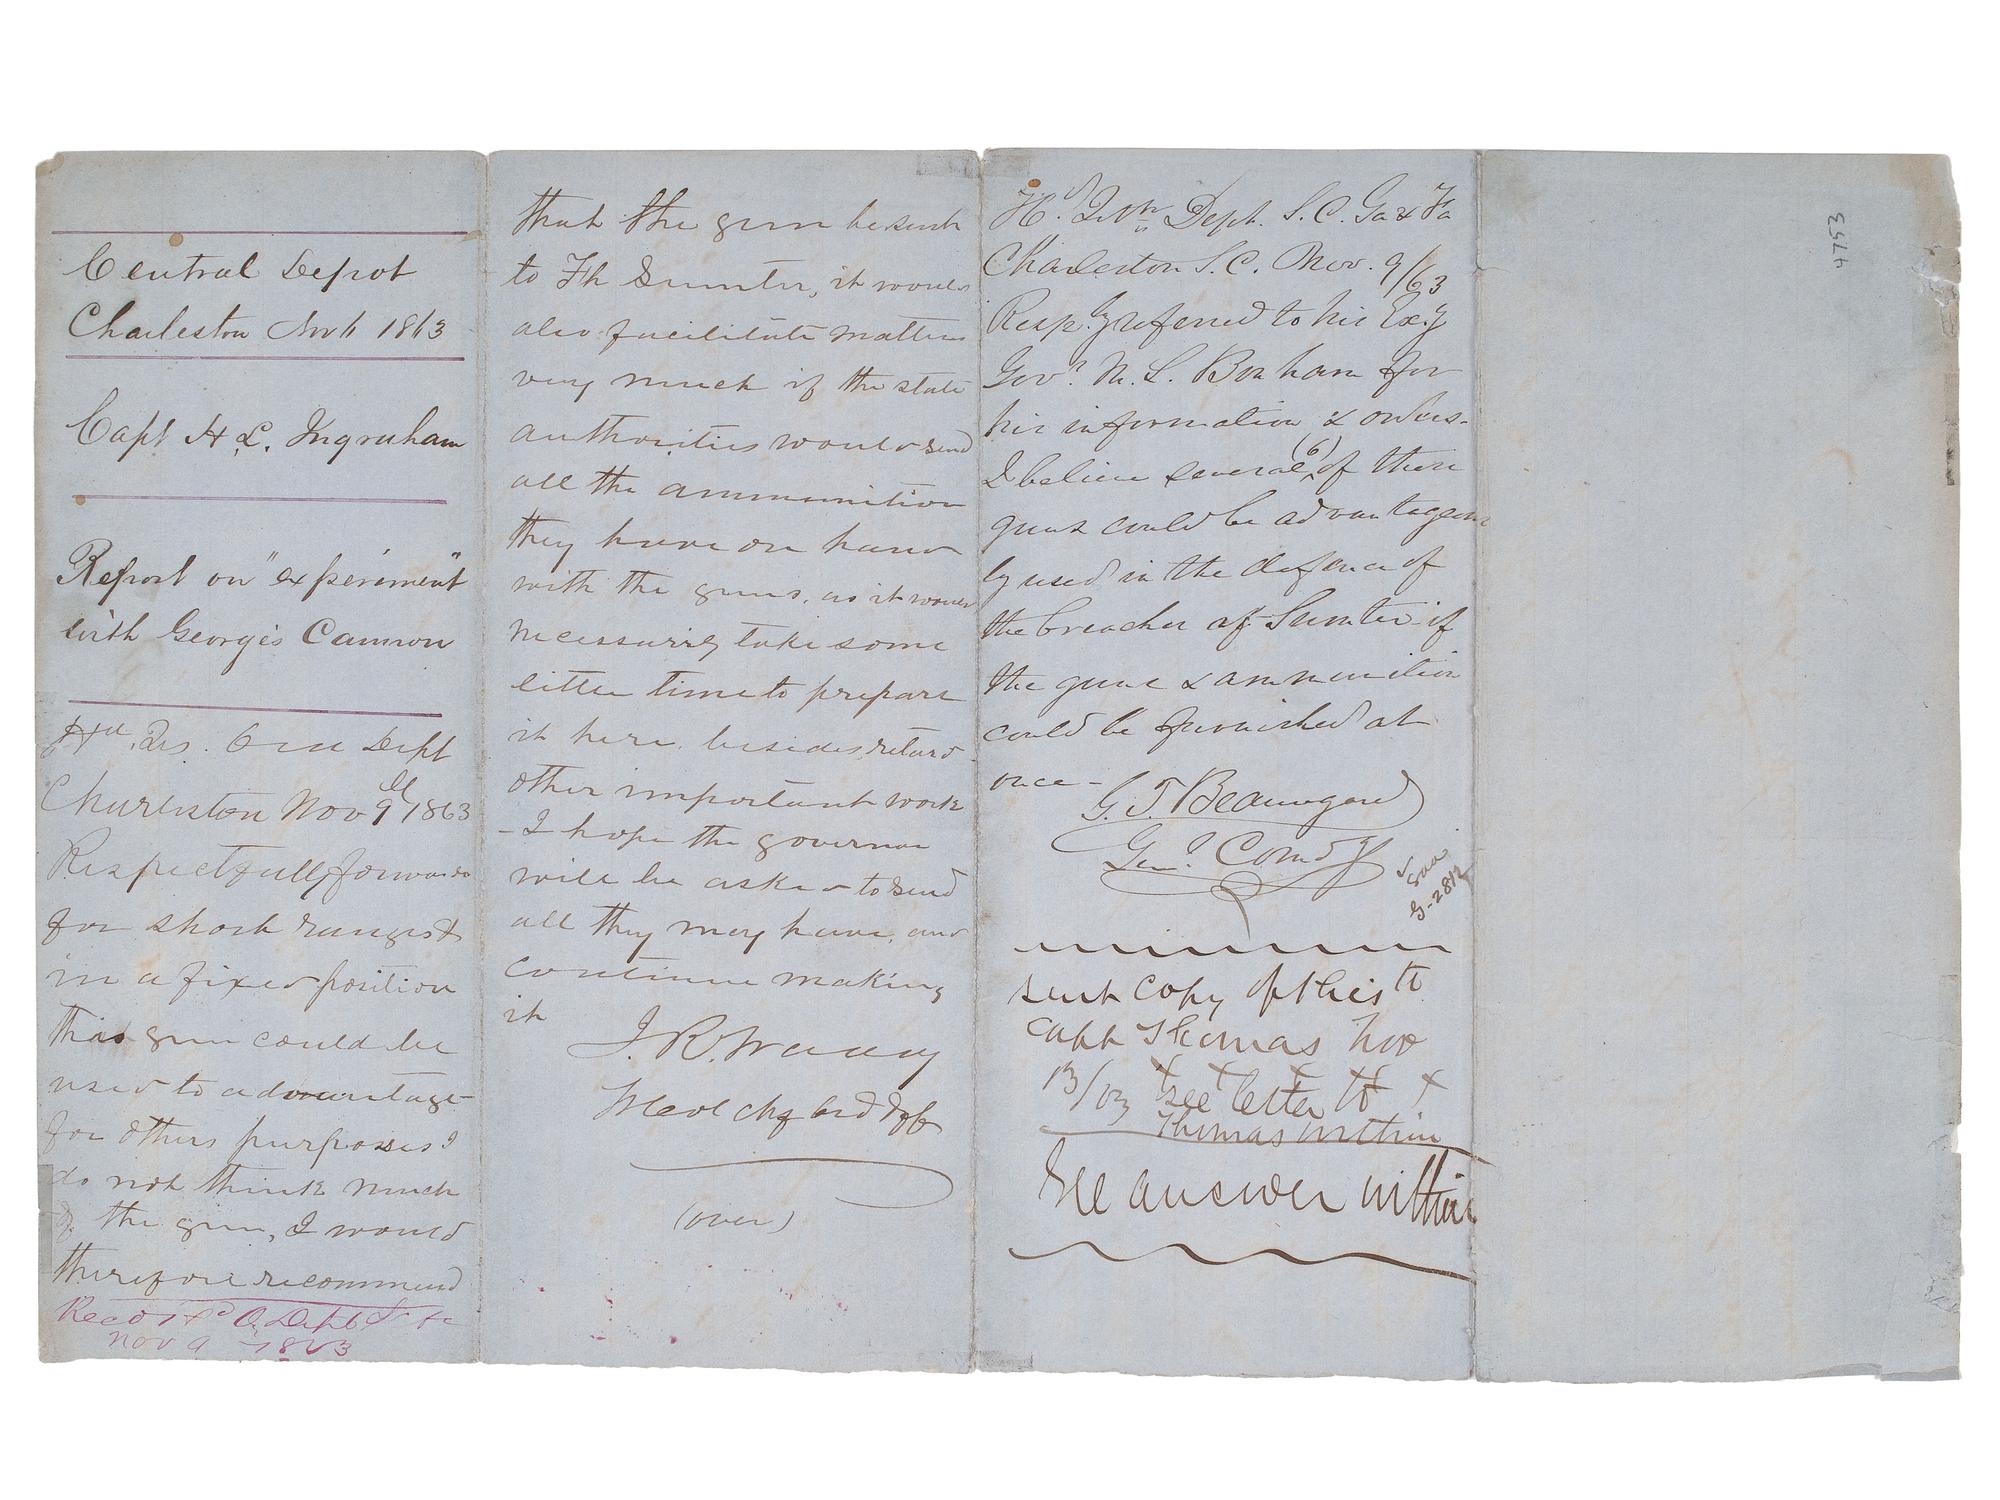 Central Depot
Charleston Nov 6 1863
Capt H L. Ingraham
Report on "experiment"
with George's Cannon
Hd Qrs. Ord Dept
Charleston Nov 9th 1863
Respectfully forwarded
for short ranges &
in a fixed position
this gun could be
used to advantage
for others purposes I
do not think much
of the gun, I would
therefore recommend
Recd Hd Q Dept
Nov 9 1863
that the gun be sent
to Ft Sumter, it would
also facilitate matters
very much if the state
authorities would send
all the ammunition
they have on hand
with the guns, as it would
necessarily take some
little time to prepare
it here, besides, retard
other important work
- I hope the governor
will be asked to send
all they may have, and
continue making
it
(over)
Hd. Qrs Dept. S. C. Ga & Fa
Charleston S. C. Nov. 9/63
Resply referred to his Excy
Govr. M. L. Bonham for
his information & orders-
I believe several (6) of these
guns could be advantageous
ly used in the defence of
the breaches of Sumter if
the guns & ammunition
could be furnished at
once-
G. T. Beauregard
Genl Comdg
G-2812
sent copy of this to
capt Thomas Nov
13/63 see letter to
Thomas within
See answer within
4753